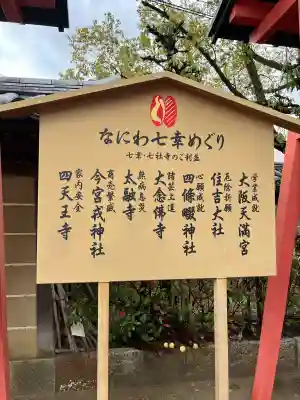 なにわ七幸めぐり
七幸・七社寺のご利益
学業成就
大阪天満宮
厄除祈願
住吉大社
心願成就
四條畷神社
諸芸上達
大念佛寺
無病息災
太融寺
商売繁盛
今宮戎神社
家内安全
四天王寺